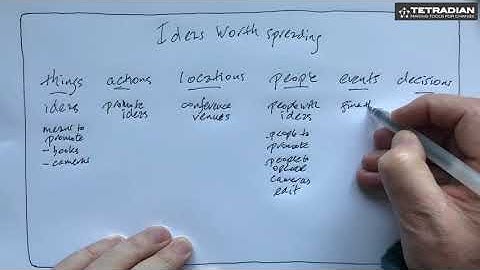 TETRADIAN
MAKING TOOLS FOR CHANGE
Ideas Worth spreading
things actions locations people events decisions
ideas
means to
promote
- books
- cameras
promote
ideas
conference
venues
people with
ideas
people to
promote
people to
operate
cameras
edit